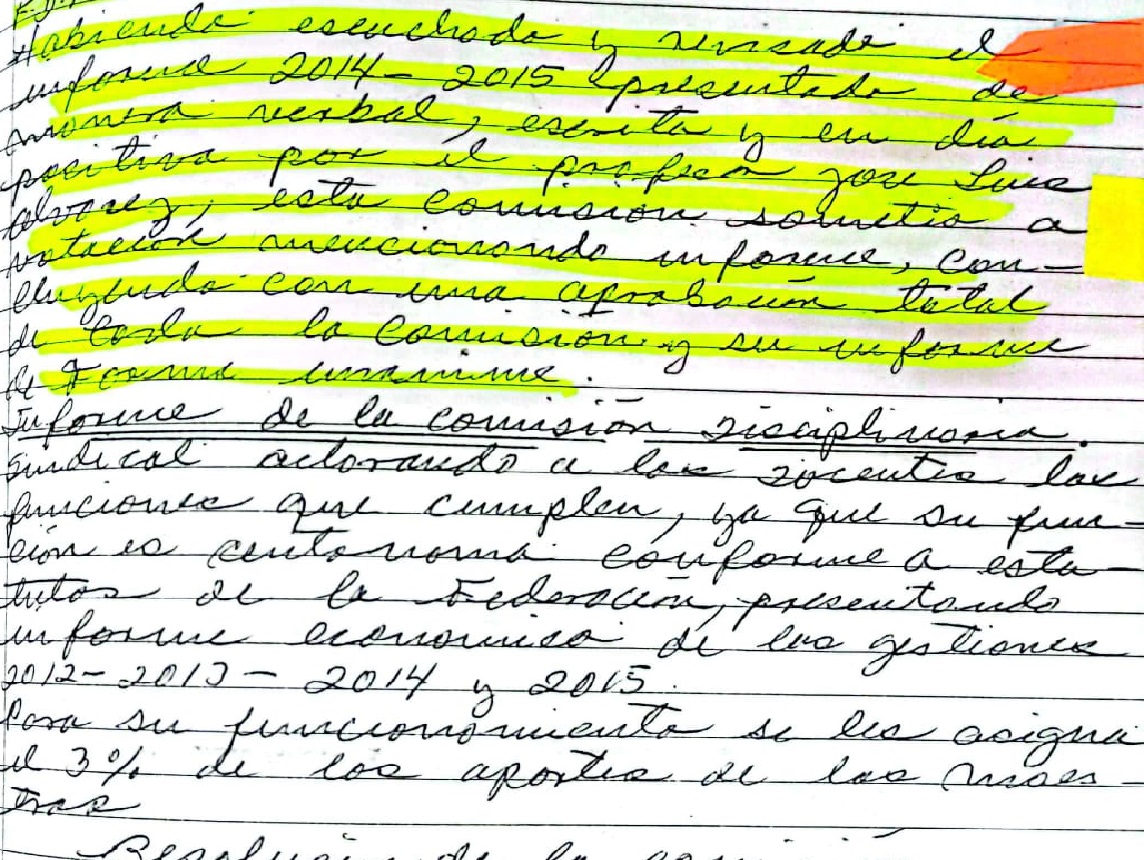 Habiendo escuchado y revisado el
informe 2014 - 2015 presentado de
manera verbal, escrita y en dia
positiva por el profesor Jose Luis
Alvarez, esta comisión sometio a
votación mencionando informe, con-
cluyendo con una aprobación total
de toda la comisión y su informe
de Forma unanime.
Informe de la comisión Disciplinaria.
Sindical aclarando a los Docentes las
funciones que cumplen, ya que su fun-
ción es autonoma conforme a esta-
tutos de la Federación, presentando
informe economico de las gestiones
2012 - 2013 - 2014 y 2015.
Para su funcionamiento se les asigna
el 3% de los aportes de los maes-
tros
Resolución de la